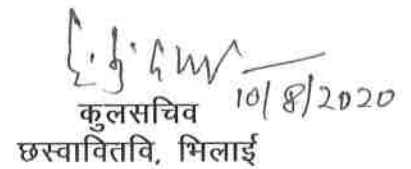 10/8/2020
कुलसचिव
छस्वावितवि, भिलाई